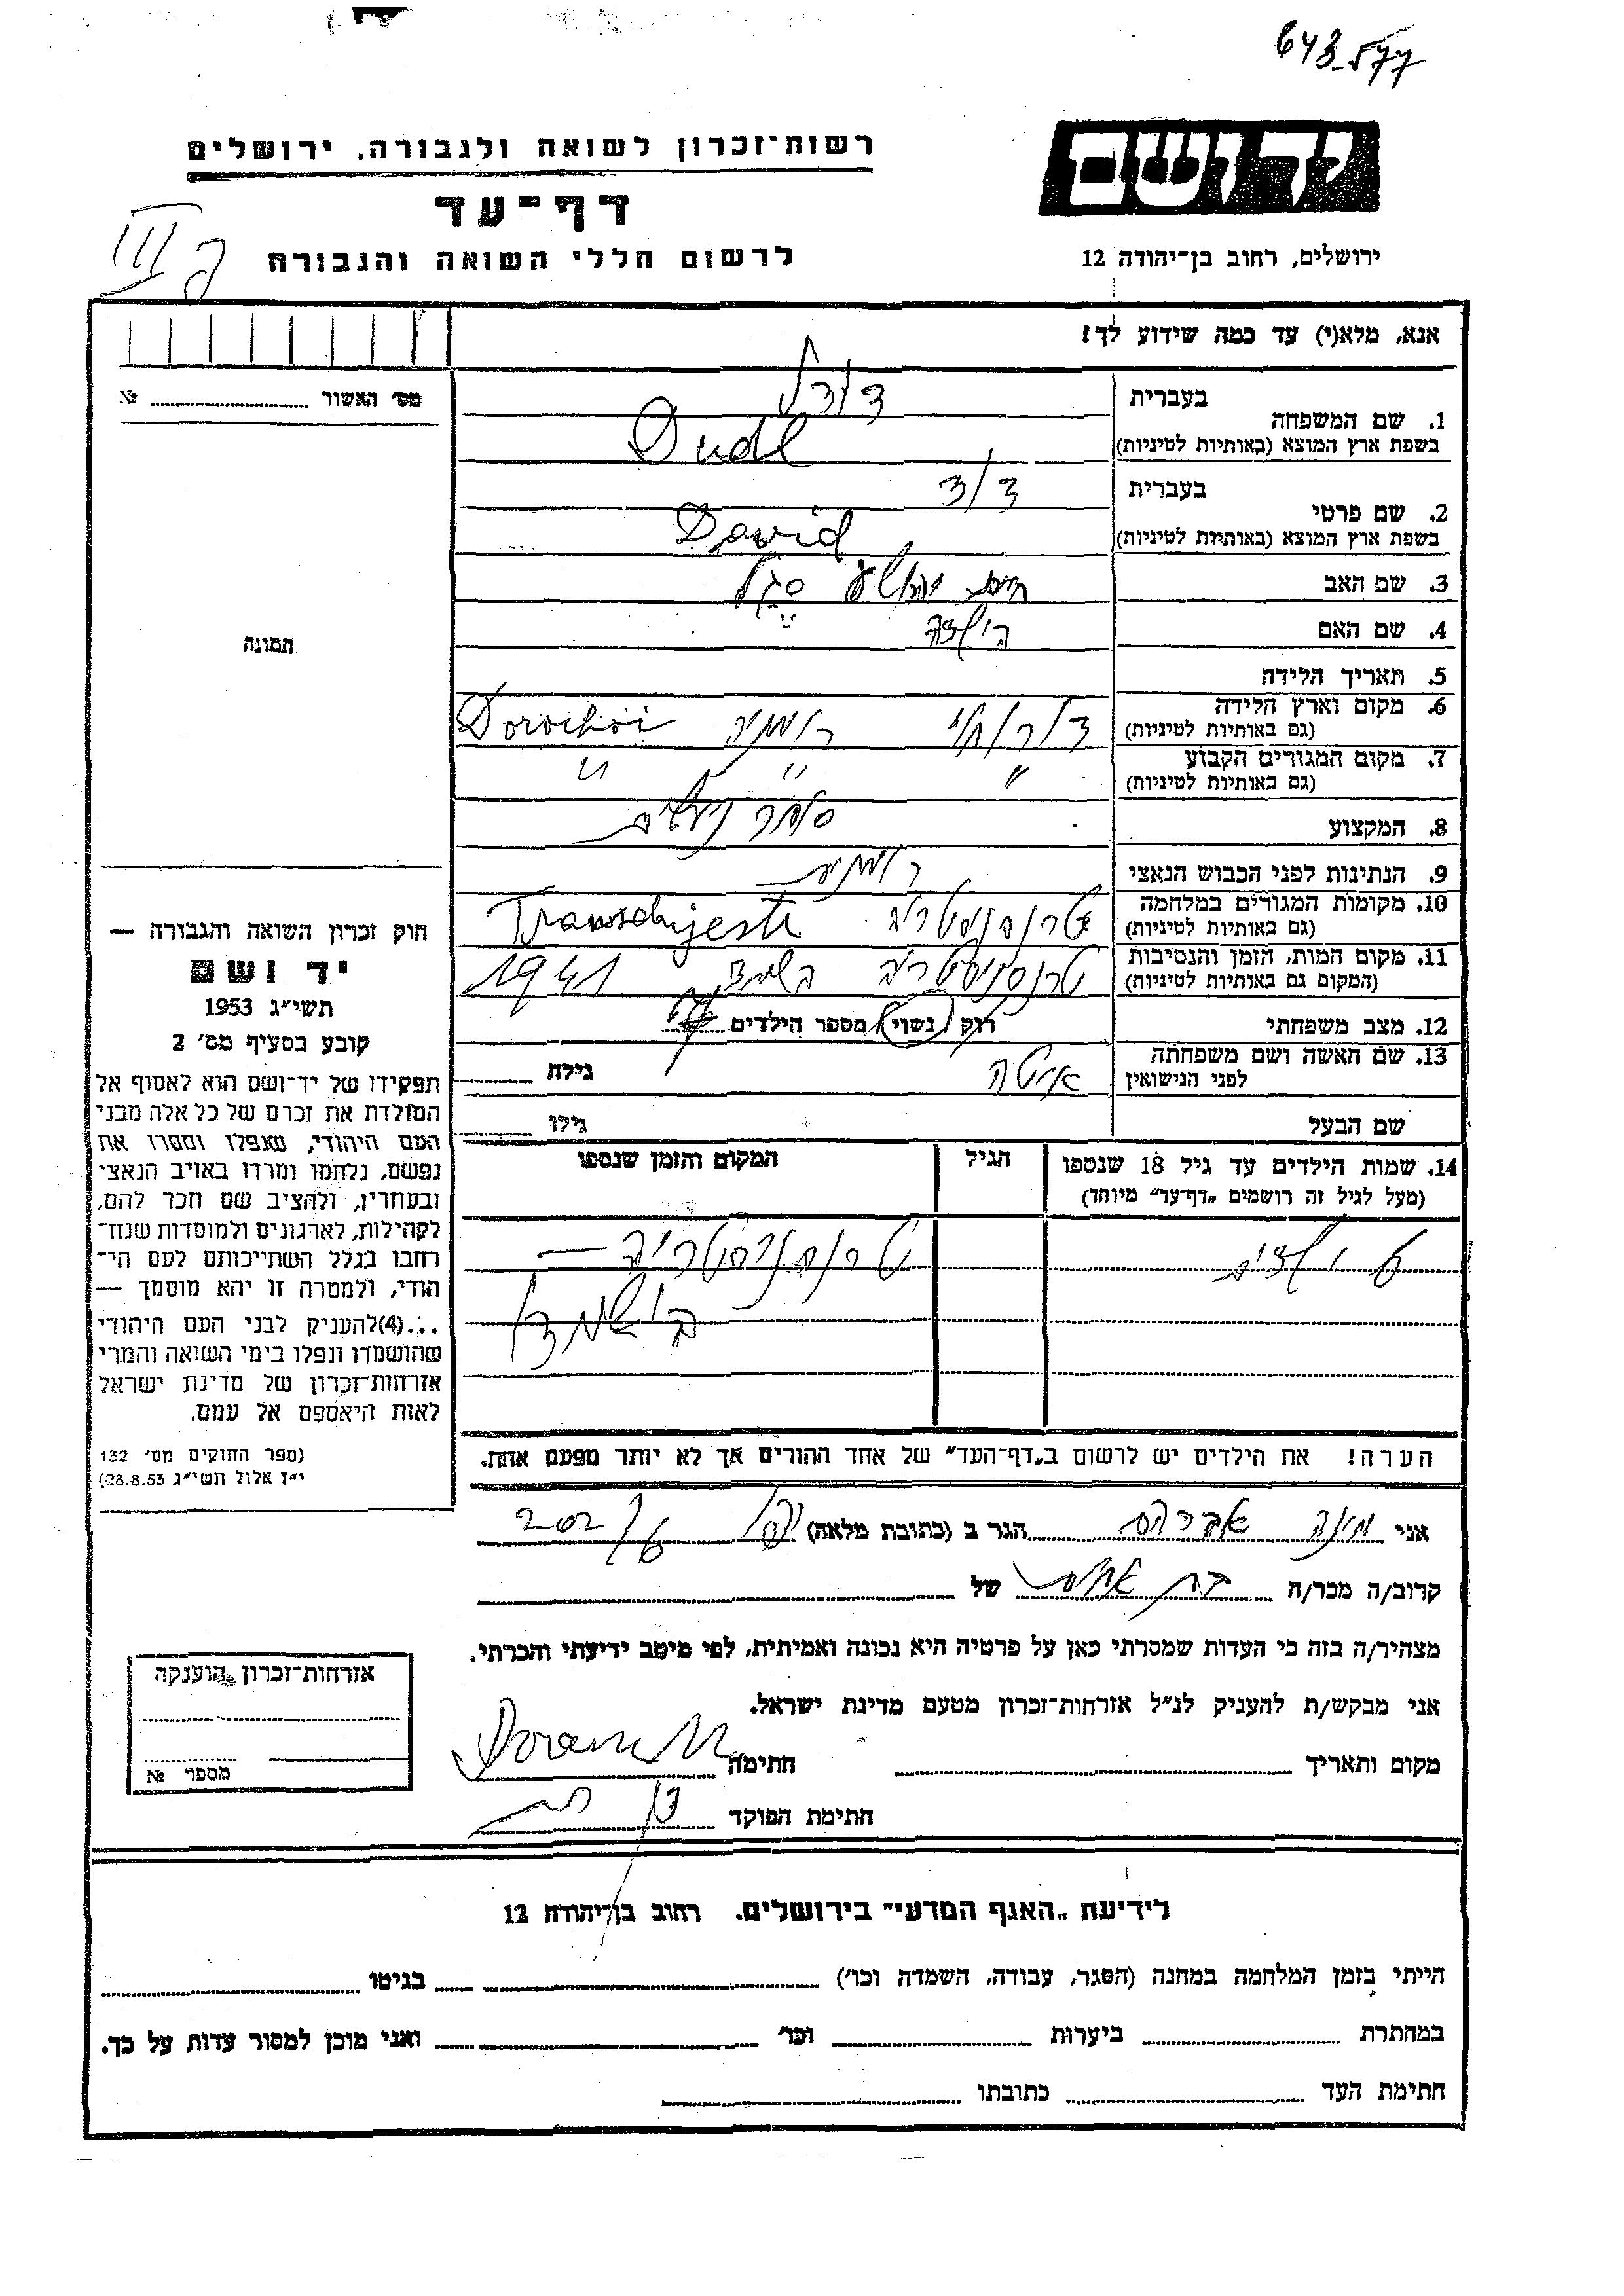 643.577
יד ושם
רשות־זכרון לשואה ולגבורה, ירושלים
דף־עד
לרשום חללי השואה והגבורה
ירושלים, רחוב בן־יהודה 12
אנא, מלא(י) עד כמה שידוע לך!
מס׳ האשור № 
בעברית
1. שם המשפחה
דודל
בשפת ארץ המוצא (באותיות לטיניות)
Dudl
בעברית
2. שם פרטי
דוד
בשפת ארץ המוצא (באותיות לטיניות)
David
3. שם האב
4. שם האם
תמונה
5. תאריך הלידה
6. מקום וארץ הלידה
(גם באותיות לטיניות)
דורוחוי רומניה Dorochoi
7. מקום המגורים הקבוע
(גם באותיות לטיניות)
" " "
8. המקצוע סוחר נעלים
9. הנתינות לפני הכבוש הנאצי רומנית
10. מקומות המגורים במלחמה
(גם באותיות לטיניות)
11. מקום המות, הזמן והנסיבות
(המקום גם באותיות לטיניות)
1941
12. מצב משפחתי רוק / נשוי / מספר הילדים
13. שם האשה ושם משפחתה
לפני הנישואין
גילה
שם הבעל גילו
14. שמות הילדים עד גיל 18 שנספו
(מעל לגיל זה רושמים „דף־עד״ מיוחד)
הגיל
המקום והזמן שנספו
טרנסניסטריה —
הערה! את הילדים יש לרשום ב„דף־העד״ של אחד ההורים אך לא יותר מפעם אחת.
חוק זכרון השואה והגבורה —
יד ושם
תשי״ג 1953
קובע בסעיף מס׳ 2
תפקידו של יד־ושם הוא לאסוף אל
המולדת את זכרם של כל אלה מבני
העם היהודי, שנפלו ומסרו את
נפשם, נלחמו ומרדו באויב הנאצי
ובעוזריו, ולהציב שם וזכר להם,
לקהילות, לארגונים ולמוסדות שנח־
רבו בגלל השתייכותם לעם הי־
הודי, ולמטרה זו יהא מוסמך —
...(4)להעניק לבני העם היהודי
שהושמדו ונפלו בימי השואה והמרי
אזרחות־זכרון של מדינת ישראל
לאות היאספם אל עמם.
(ספר החוקים מס׳ 132
י״ז אלול תשי״ג 28.8.53)
אני אברהם הגר ב (כתובת מלאה) 202/6
קרוב/ה מכר/ה של
מצהיר/ה בזה כי העדות שמסרתי כאן על פרטיה היא נכונה ואמיתית, לפי מיטב ידיעתי והכרתי.
אני מבקש/ת להעניק לנ״ל אזרחות־זכרון מטעם מדינת ישראל.
מקום ותאריך חתימה
חתימת הפוקד
אזרחות־זכרון הוענקה
מספר №
לידיעת „האגף המדעי״ בירושלים. רחוב בן־יהודה 12
הייתי בזמן המלחמה במחנה (הסגר, עבודה, השמדה וכו׳) בגיטו
במחתרת ביערות וכו׳ ואני מוכן למסור עדות על כך.
חתימת העד כתובתו